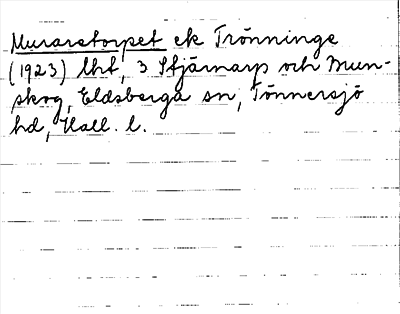 Muraretorpet ek Trönninge
(1923) lht, 3 Stjärnarp och Brun-
skog, Eldsberga sn, Tönnersjö
hd, Hall. l.